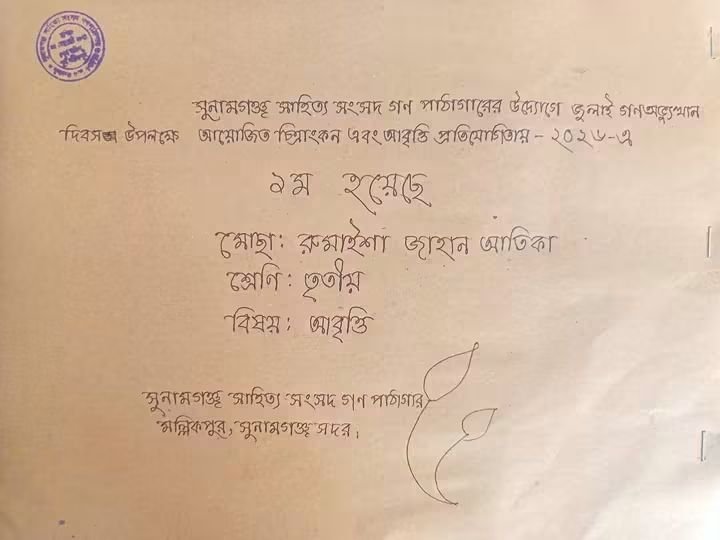 সুনামগঞ্জ সাহিত্য সংসদ গণ পাঠাগারের উদ্যোগে জুলাই গণঅভ্যুত্থান
দিবস উপলক্ষে আয়োজিত চিত্রাংকন এবং আবৃত্তি প্রতিযোগিতায় - ২০২৬-এ
১ম হয়েছে
মোছা: রুমাইশা জাহান আতিকা
শ্রেণি: তৃতীয়
বিষয়: আবৃত্তি
সুনামগঞ্জ সাহিত্য সংসদ গণ পাঠাগার
মল্লিকপুর, সুনামগঞ্জ সদর।